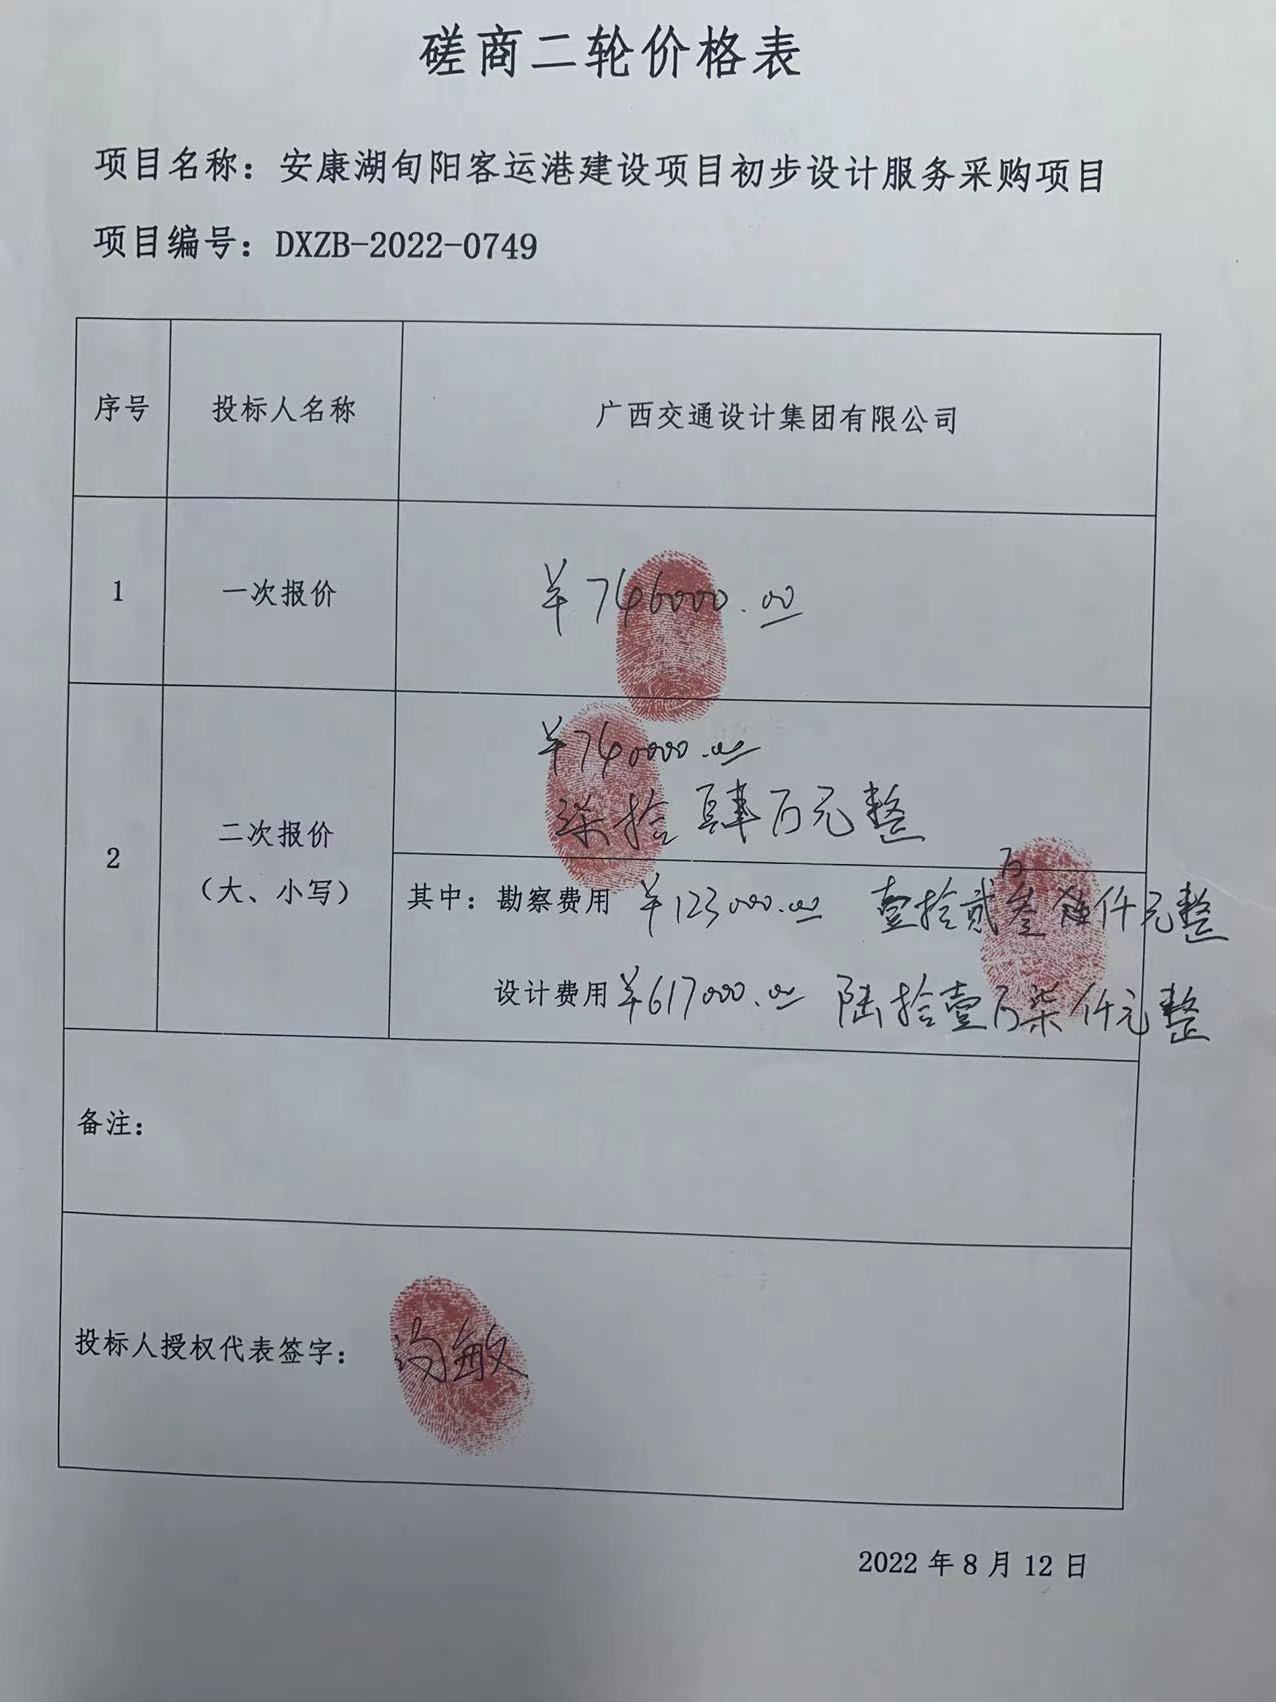 磋商二轮价格表
项目名称：安康湖旬阳客运港建设项目初步设计服务采购项目
项目编号：DXZB-2022-0749
序号 投标人名称 广西交通设计集团有限公司
1 一次报价 ¥746000.00
2 二次报价（大、小写）
¥740000.00
柒拾肆万元整
其中：勘察费用 ¥123000.00 壹拾贰万叁仟元整
设计费用 ¥617000.00 陆拾壹万柒仟元整
备注：
投标人授权代表签字： 敏
2022 年 8 月 12 日